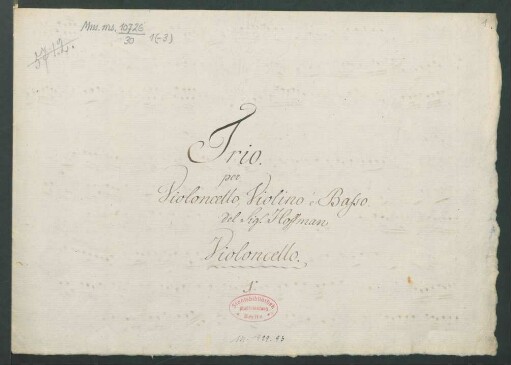 Mus. ms. 10725
30
1(-3)
Trio.
per
Violoncello, Violino è Basso
del Sigr Hoffman
Violoncello.